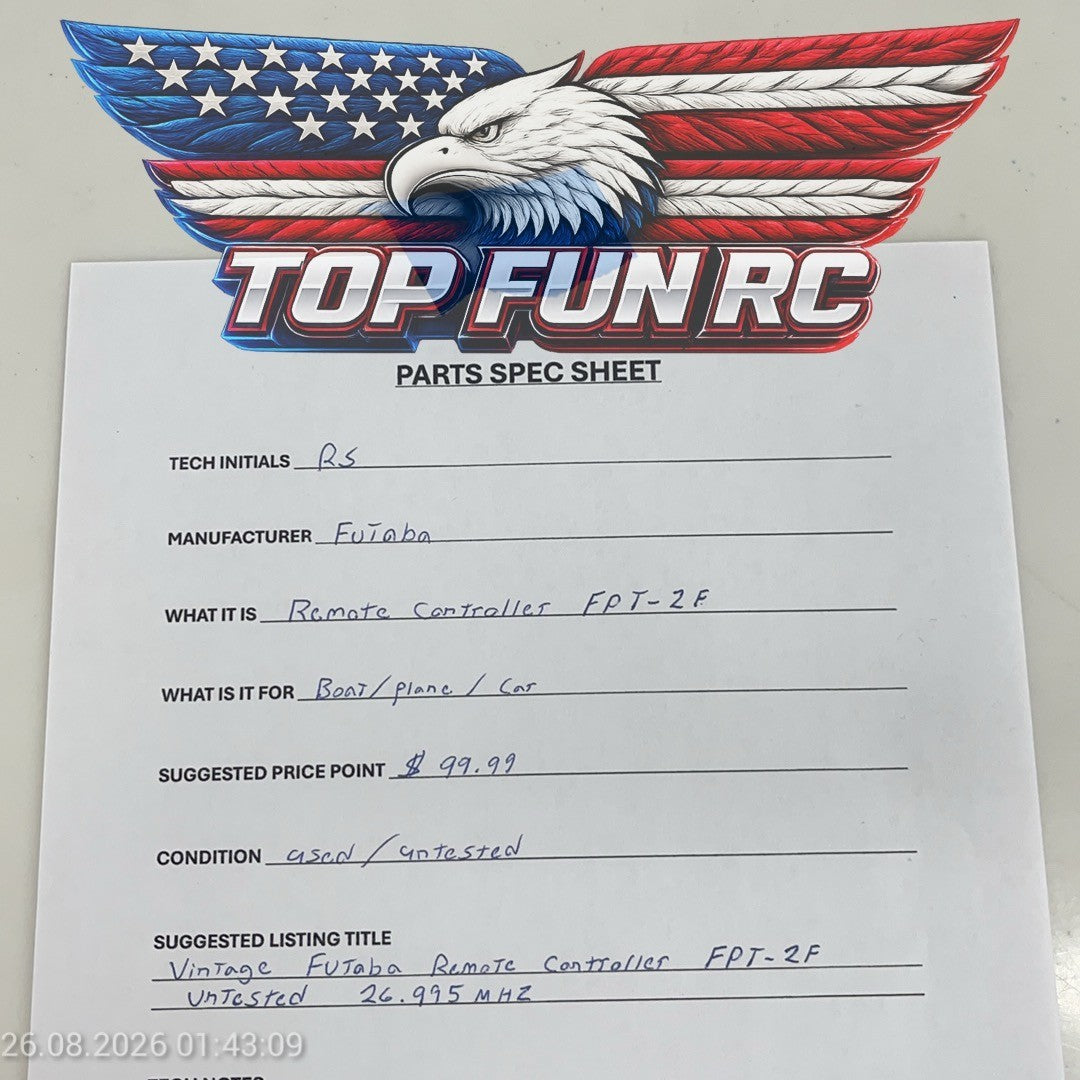 TOP FUN RC
PARTS SPEC SHEET
TECH INITIALS RS
MANUFACTURER Futaba
WHAT IT IS Remote Controller FPT-2F
WHAT IS IT FOR Boat/plane / Car
SUGGESTED PRICE POINT $ 99.99
CONDITION used / untested
SUGGESTED LISTING TITLE
Vintage Futaba Remote Controller FPT-2F
Untested 26.995 MHZ
26.08.2026 01:43:09
TECH NOTES